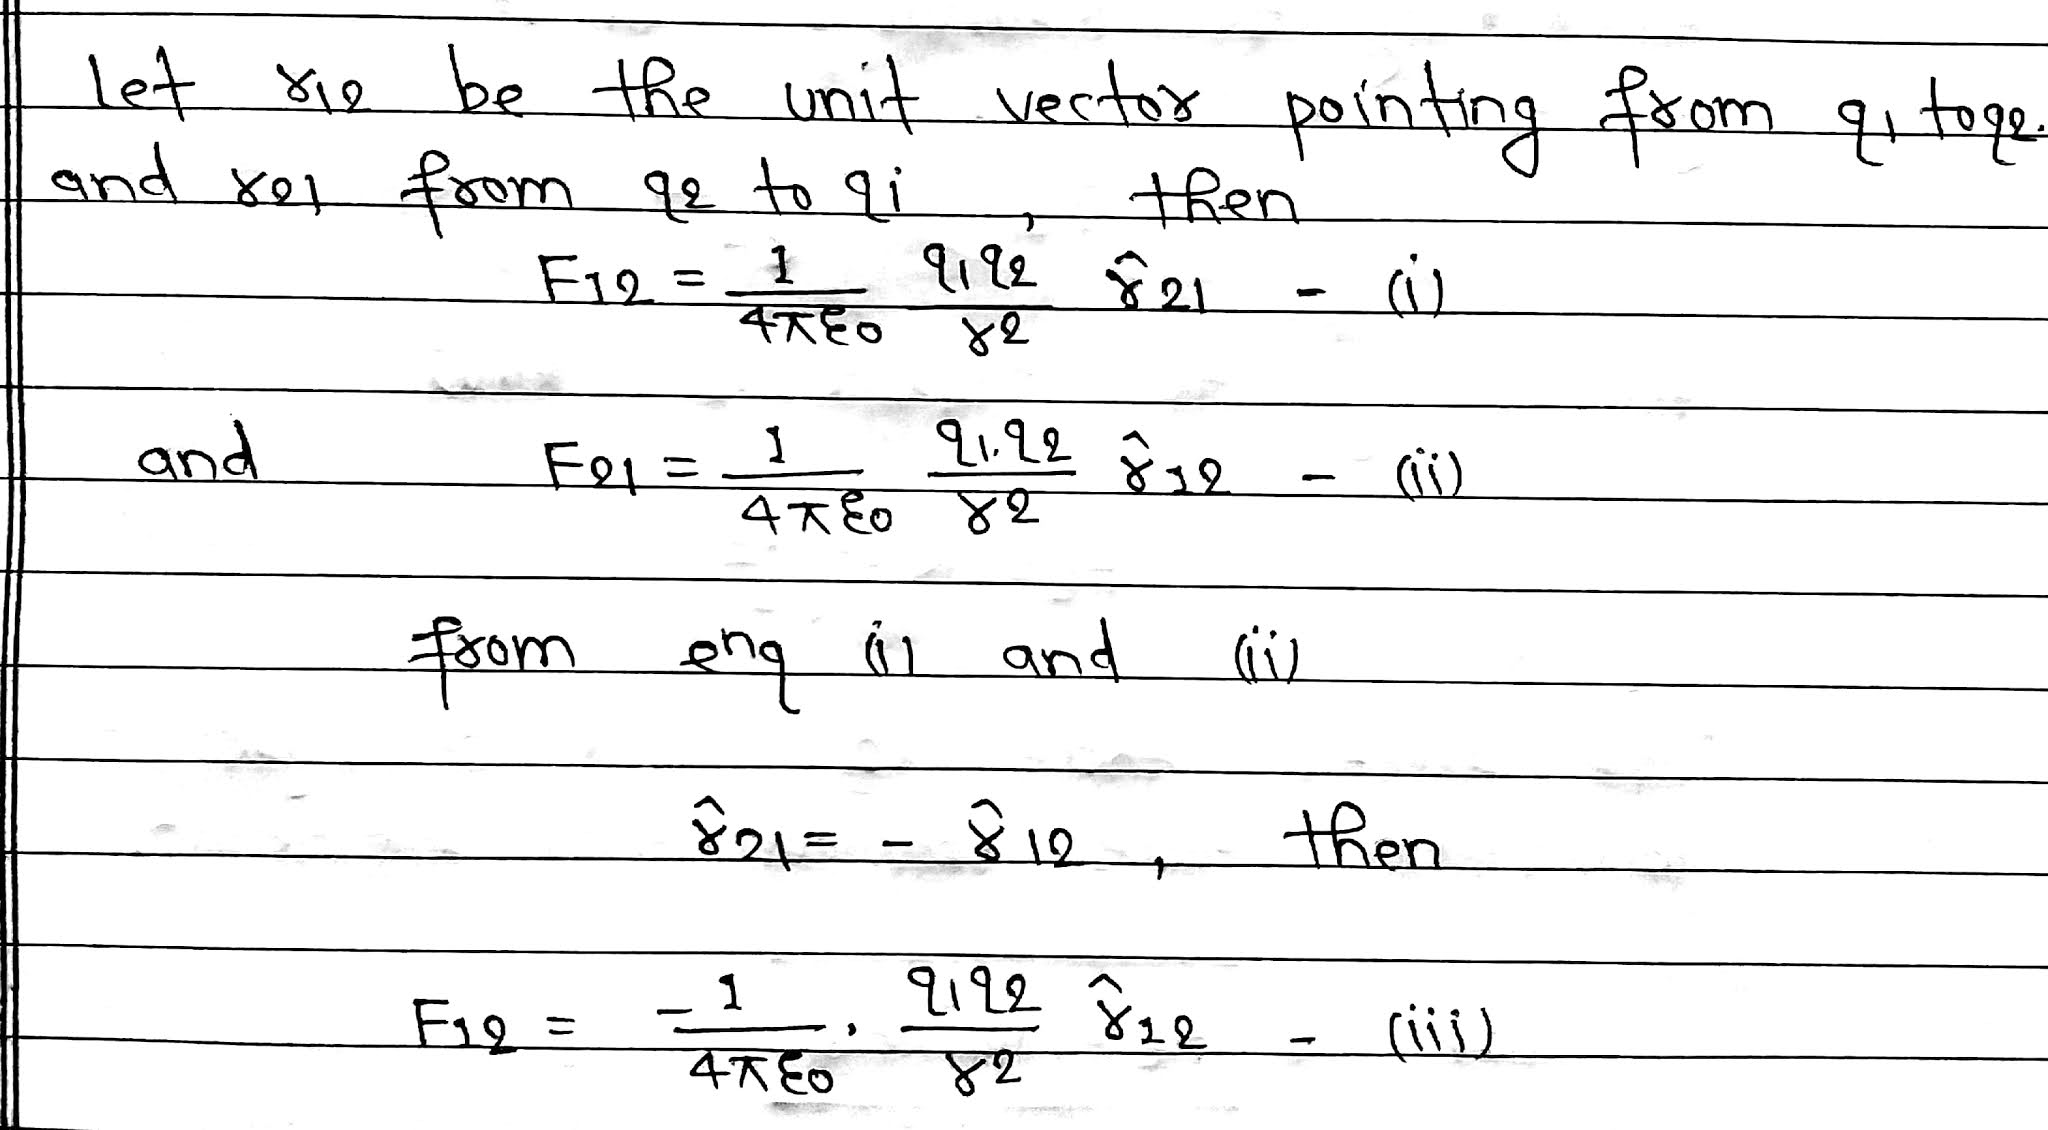 let r12 be the unit vector pointing from q1 to q2.
and r21 from q2 to qi, then
F12 = 1/4πε0 q1q2/r2 r̂21 - (i)
and F21 = 1/4πε0 q1.q2/r2 r̂12 - (ii)
from enq (i) and (ii)
r̂21 = - r̂12, then
F12 = -1/4πε0 . q1q2/r2 r̂12 - (iii)